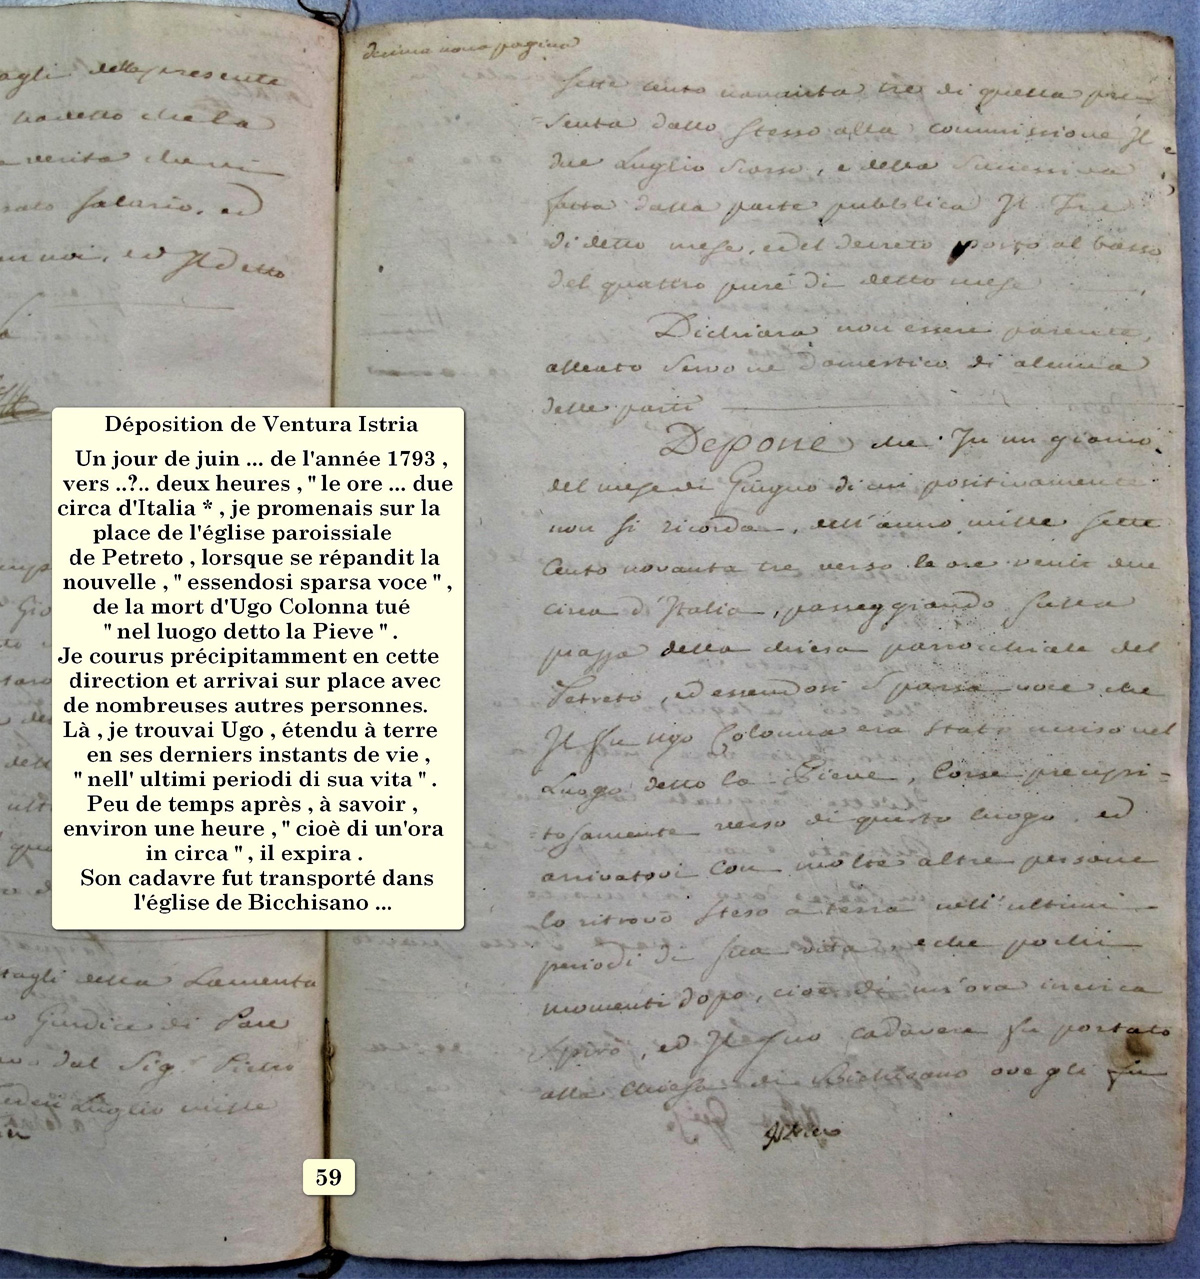 decima nona pagina
agli della presente
verita che
salario, ed
noi, ed Il detto
tagli della Lamenta
Giudice di Pace
dal Sig. Pietro
Luglio mille
sette cento novanta tre di quella pre-
senta dallo stesso alla commissione Il
due Luglio scorso, e della
fatta dalla parte pubblica Il Tre
di detto mese, e del decreto posto al basso
del quattro pure di detto mese
Dichiara non essere parente,
alleato servo ne domestico di alcuna
delle parti
Depone che In un giorno
del mese di Giugno di cui positivamente
non si ricorda, dell'anno mille sette
cento novanta tre verso le ore venti due
circa d'Italia, passeggiando sulla
piazza della chiesa parrocchiale del
Petreto, ed essendosi sparsa voce che
Il fu Ugo Colonna era stato ucciso nel
Luogo detto la Pieve, corse precipi-
tosamente verso di questo luogo, ed
arrivatovi con molte altre persone
lo ritrovò steso a terra nell'ultimi
periodi di sua vita e che pochi
momenti dopo, cioè di un'ora incirca
spirò, ed Il suo cadavere fu portato
alla chiesa di Bichisano ove gli fu
Istria
Déposition de Ventura Istria
Un jour de juin ... de l'année 1793 ,
vers ..?.. deux heures , " le ore ... due
circa d'Italia * , je promenais sur la
place de l'église paroissiale
de Petreto , lorsque se répandit la
nouvelle , " essendosi sparsa voce " ,
de la mort d'Ugo Colonna tué
" nel luogo detto la Pieve " .
Je courus précipitamment en cette
direction et arrivai sur place avec
de nombreuses autres personnes.
Là , je trouvai Ugo , étendu à terre
en ses derniers instants de vie ,
" nell' ultimi periodi di sua vita " .
Peu de temps après , à savoir ,
environ une heure , " cioè di un'ora
in circa " , il expira .
Son cadavre fut transporté dans
l'église de Bicchisano ...
59